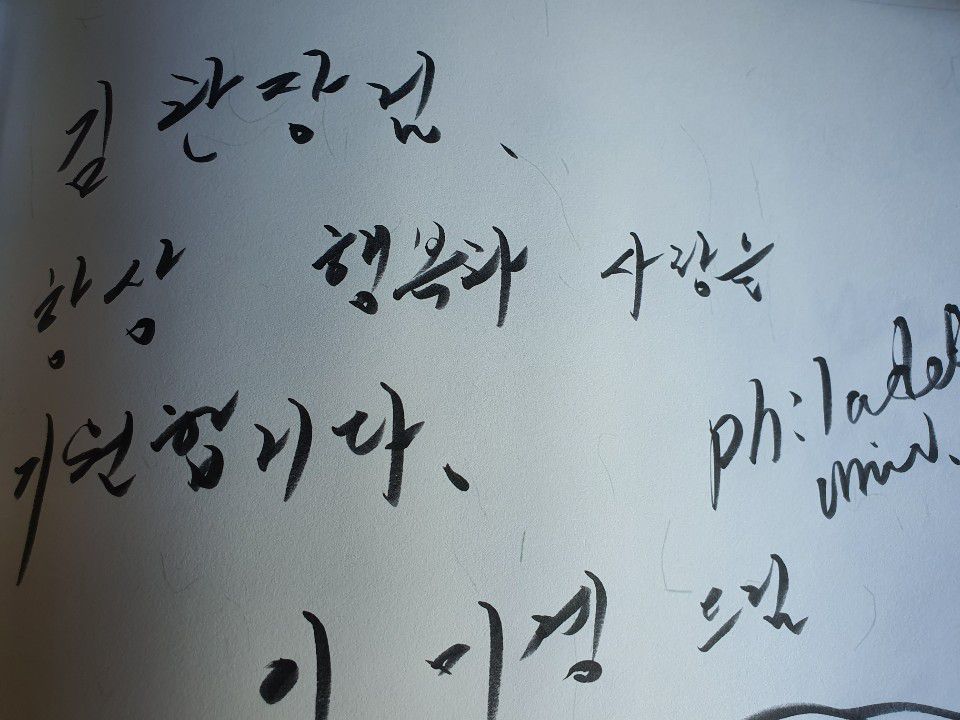 김 관장님、
항상 행복과 사랑을
philadel
기원합니다、
univ.
이 미경 드림